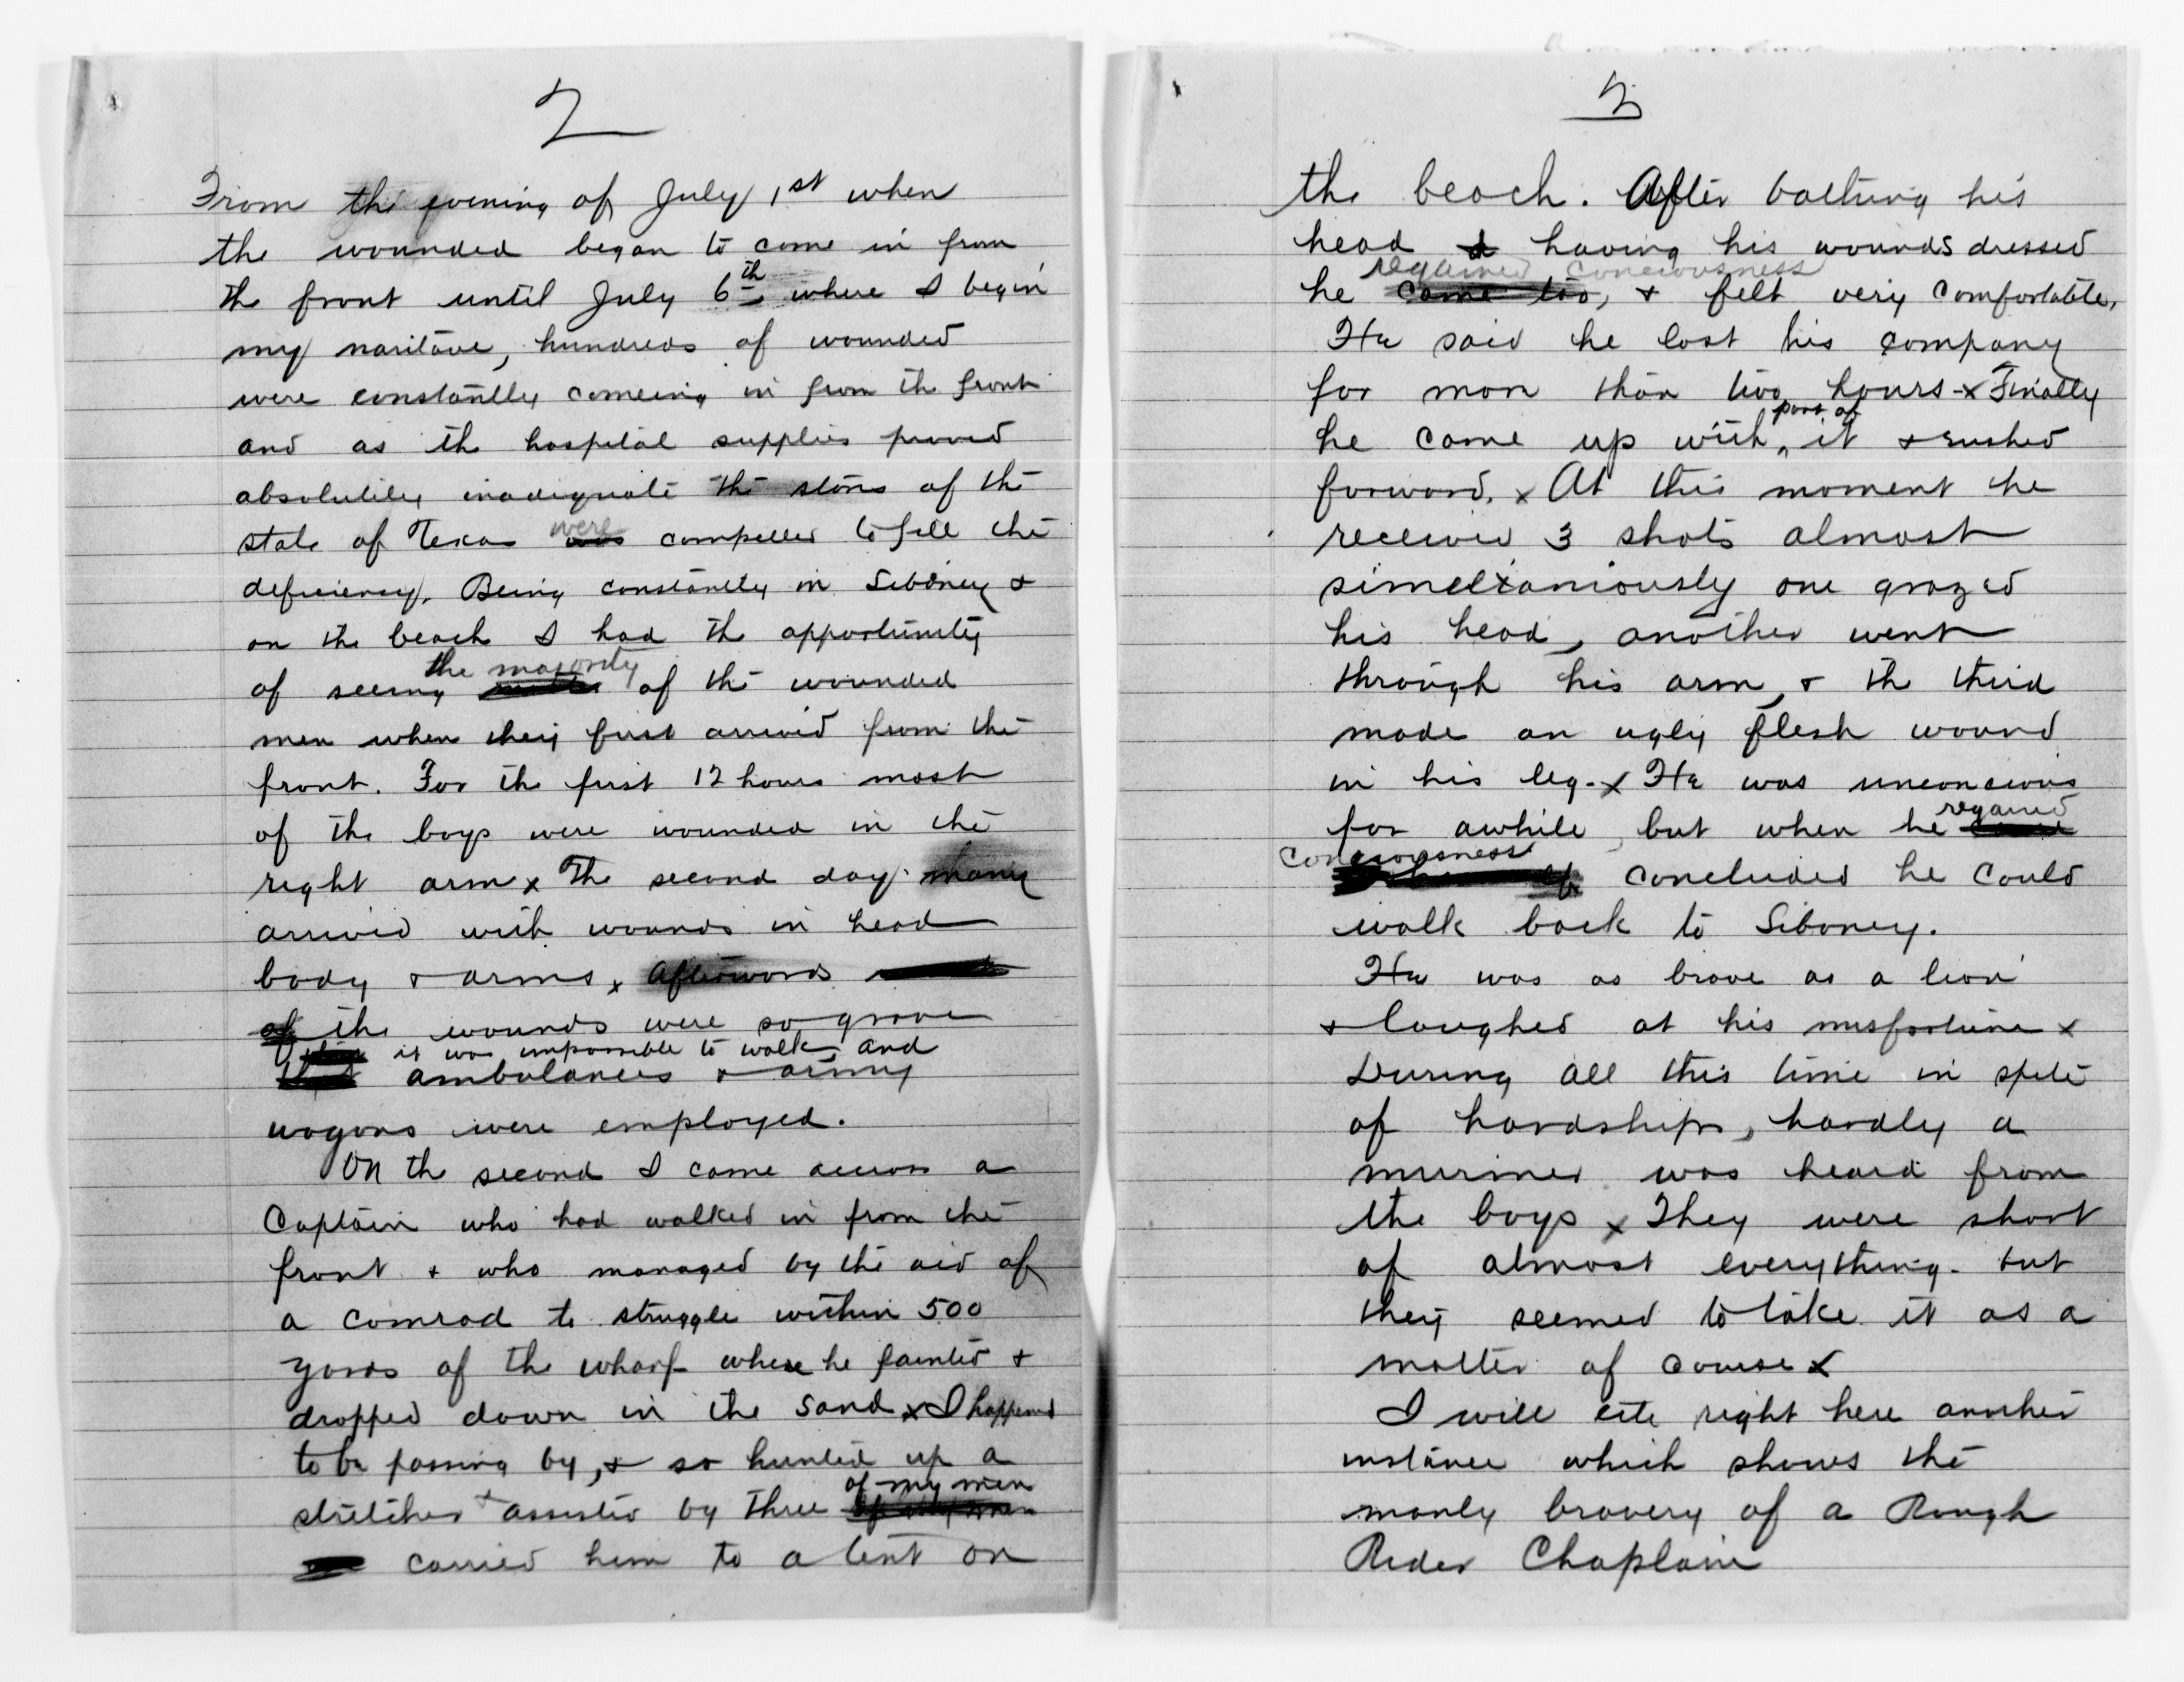 2
From the evening of July 1st when
the wounded began to come in from
the front until July 6th where I begin
my naritave, hundreds of wounded
were constantly comeing in from the front
and as the hospital supplies proved
absolutely inadequate the stores of the
state of Texas were compelled to fill the
deficiency. Being constantly in Siboney &
on the beach I had the opportunity
the majority
of seeing of the wounded
men when they first arrived from the
front. For the first 12 hours most
of the boys were wounded in the
right arm x The second day many
arrived with wounds in head
body & arms x Afterwards
of the wounds were so grave
it was impossible to walk, and
ambulances & army
wagons were employed.
On the second I came across a
Captain who had walked in from the
front & who managed by the aid of
a comrad to struggle within 500
yards of the wharf where he fainted &
dropped down in the sand x I happened
to be passing by, & so hunted up a
of my men
stretcher & assisted by three of my men
carried him to a tent on
3
the beach. After bathing his
head & having his wounds dressed
regained conciousness
he came too, & felt very comfortable.
He said he lost his company
for more than two hours - x Finally
part of
he came up with it & rushed
forward. x At this moment he
received 3 shots almost
simeltaniously one grazed
his head, another went
through his arm, & the third
made an ugly flesh wound
in his leg - x He was unconcious
regained
for awhile, but when he came
conciousness
concluded he could
walk back to Siboney.
He was as brave as a lion
& laughed at his misfortune x
During all this time in spite
of hardships, hardly a
murmer was heard from
the boys x They were short
of almost everything - but
they seemed to take it as a
matter of course x
I will cite right here another
instance which shows the
manly bravery of a Rough
Rider Chaplain